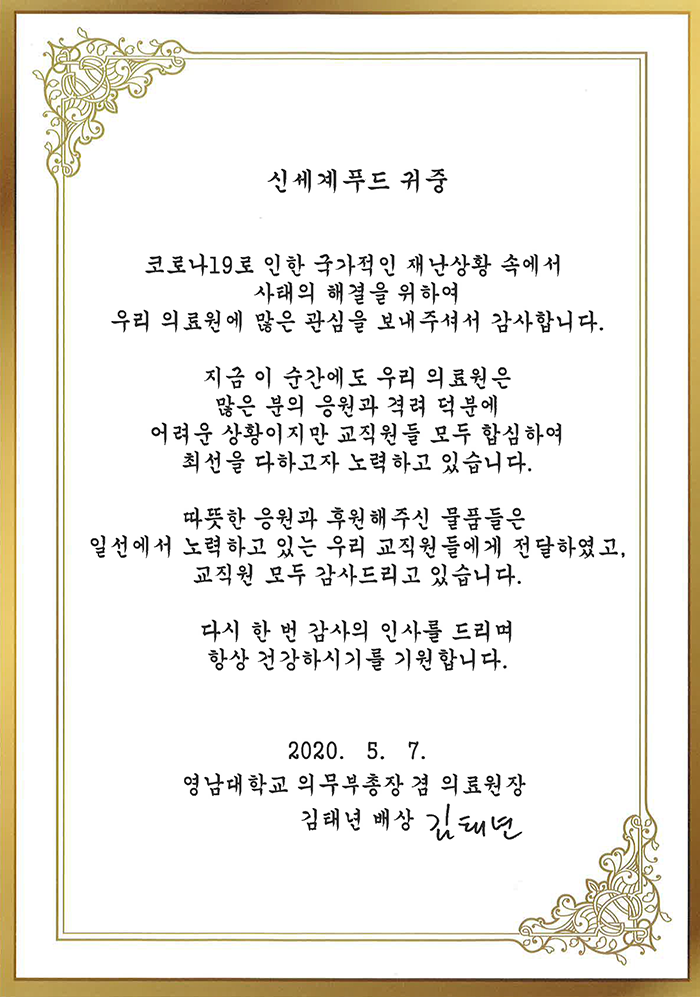 신세계푸드 귀중
코로나19로 인한 국가적인 재난상황 속에서
사태의 해결을 위하여
우리 의료원에 많은 관심을 보내주셔서 감사합니다.
지금 이 순간에도 우리 의료원은
많은 분의 응원과 격려 덕분에
어려운 상황이지만 교직원들 모두 합심하여
최선을 다하고자 노력하고 있습니다.
따뜻한 응원과 후원해주신 물품들은
일선에서 노력하고 있는 우리 교직원들에게 전달하였고,
교직원 모두 감사드리고 있습니다.
다시 한 번 감사의 인사를 드리며
항상 건강하시기를 기원합니다.
2020. 5. 7.
영남대학교 의무부총장 겸 의료원장
김태년 배상 김태년